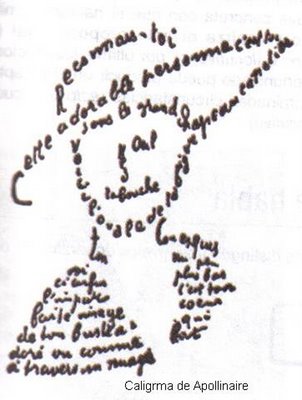 Reconnais-toi
Cette adorable personne c'est toi
sous le grand chapeau canotier
œil
nez
la bouche
Voici l'ovale de ta figure
ton
cou exquis
voi
ci enfin
l'impar
faite image
de ton buste a
doré vu comme
à travers un nuage
un peu
plus bas
c'est ton
coeur
qui
bat
Caligrma de Apollinaire